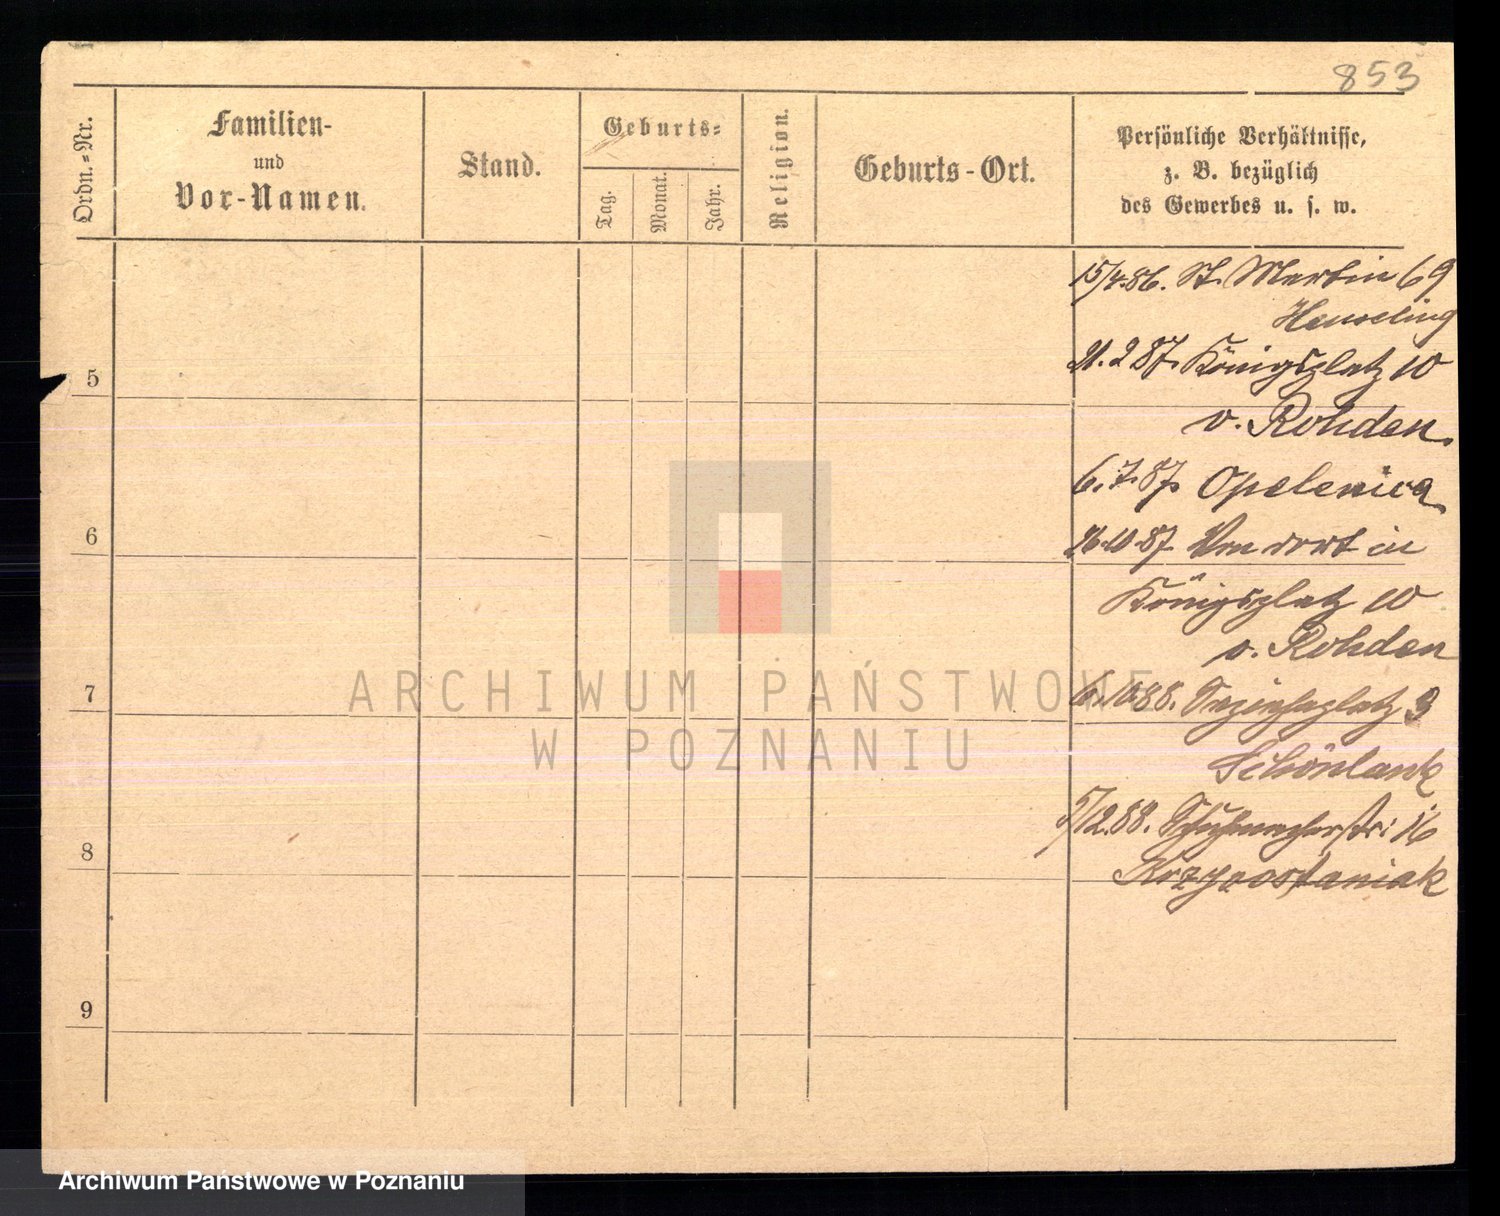 853
Ordn.=Nr.
Familien-
und
Vor-Namen.
Stand.
Geburts=
Tag.
Monat.
Jahr.
Religion.
Geburts-Ort.
Persönliche Verhältnisse,
z. B. bezüglich
des Gewerbes u. s. w.
15/4.86. St. Martin 69
Henseling
21.2 87. Königsplatz 10
v. Rohden.
5
6.7.87. Opalenica
26.10.87 Von dort in
6
Königsplatz 10
v. Rohden
6.10.88. Sapiehaplatz 3
7
Schönlank
5/12.88. Schuhmacherstr: 16
8
Krzyzostaniak
9
ARCHIWUM PAŃSTWOWE
W POZNANIU
Archiwum Państwowe w Poznaniu